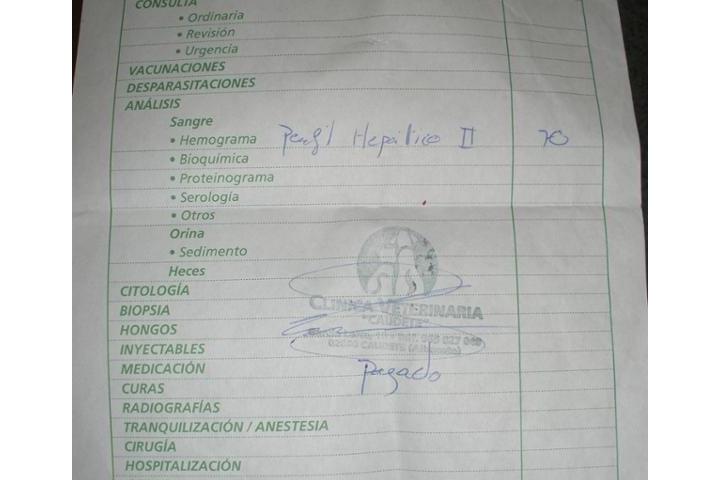 CONSULTA
• Ordinaria
• Revisión
• Urgencia
VACUNACIONES
DESPARASITACIONES
ANÁLISIS
Sangre
• Hemograma Perfil Hepático II 70
• Bioquímica
• Proteinograma
• Serología
• Otros
Orina
• Sedimento
Heces
CITOLOGÍA
CLINICA VETERINARIA
BIOPSIA
"CAUDETE"
HONGOS
02660 CAUDETE (Albacete)
INYECTABLES
MEDICACIÓN
Pagado
CURAS
RADIOGRAFÍAS
TRANQUILIZACIÓN / ANESTESIA
CIRUGÍA
HOSPITALIZACIÓN